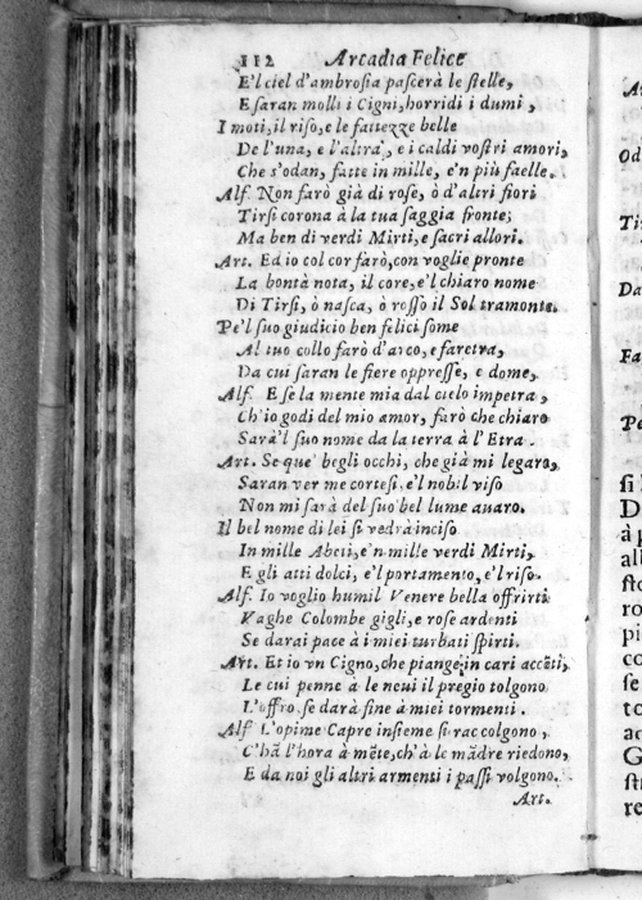 112 Arcadia Felice
E'l ciel d'ambrosia pascerà le stelle,
E saran molli i Cigni, horridi i dumi,
I moti, il riso, e le fattezze belle
De l'una, e l'altra, e i caldi vostri amori,
Che s'odan, fatte in mille, e'n più faelle.
Alf. Non farò già di rose, ò d'altri fiori
Tirsi corona à la tua saggia fronte;
Ma ben di verdi Mirti, e sacri allori.
Art. Ed io col cor farò, con voglie pronte
La bontà nota, il core, e'l chiaro nome
Di Tirsi, ò nasca, ò rosso il Sol tramonte.
Pe'l suo giudicio ben felici some
Al tuo collo farò d'arco, e faretra,
Da cui saran le fiere oppresse, e dome,
Alf. E se la mente mia dal cielo impetra,
Ch'io godi del mio amor, farò che chiaro
Sarà'l suo nome da la terra à l'Etra.
Art. Se que' begli occhi, che già mi legaro,
Saran ver me cortesi, e'l nobil viso
Non mi sarà del suo bel lume auaro.
Il bel nome di lei si vedrà inciso
In mille Abeti, e'n mille verdi Mirti,
E gli atti dolci, e'l portamento, e'l riso.
Alf. Io voglio humil Venere bella offrirti
Vaghe Colombe gigli, e rose ardenti
Se darai pace à i miei turbati spirti.
Art. Et io vn Cigno, che piange in cari accẽti,
Le cui penne à le neui il pregio tolgono
L'offro se darà fine à miei tormenti.
Alf L'opime Capre insieme si raccolgono,
C'hã l'hora à mẽte, ch'à le mãdre riedono,
E da noi gli altri armenti i passi volgono.
Art.